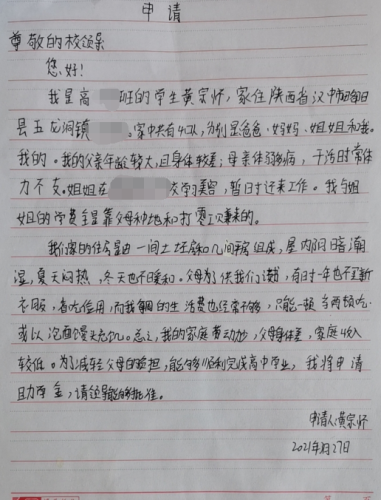 申请
尊敬的校领导
您好!
我是高 班的学生黄宗师,家住陕西省汉中市略阳
县五龙洞镇 。家中共有4口人,分别是爸爸、妈妈、姐姐和我。
我的。我的父亲年龄较大,且身体较差;母亲体弱多病,干活时常体
力不支。姐姐在 交学美容,暂时还未工作。我与姐
姐的学费全是靠父母种地和打零工赚来的。
我们家的住房是由一间土坯房和几间砖房组成,屋内阴暗潮
湿,夏天闷热,冬天也不暖和。父母为供我们读书,有时一年也不更新
衣服,省吃俭用,而我每周的生活费也经常不够,只能一顿当两顿吃,
或以泡面馒头充饥。总之,我的家庭劳动力少,父母身体差,家庭收入
较低。为了减轻父母的负担,能够顺利完成高中学业,我将申请
助学金,请领导能够批准。
申请人:黄宗师
2021年 月27日